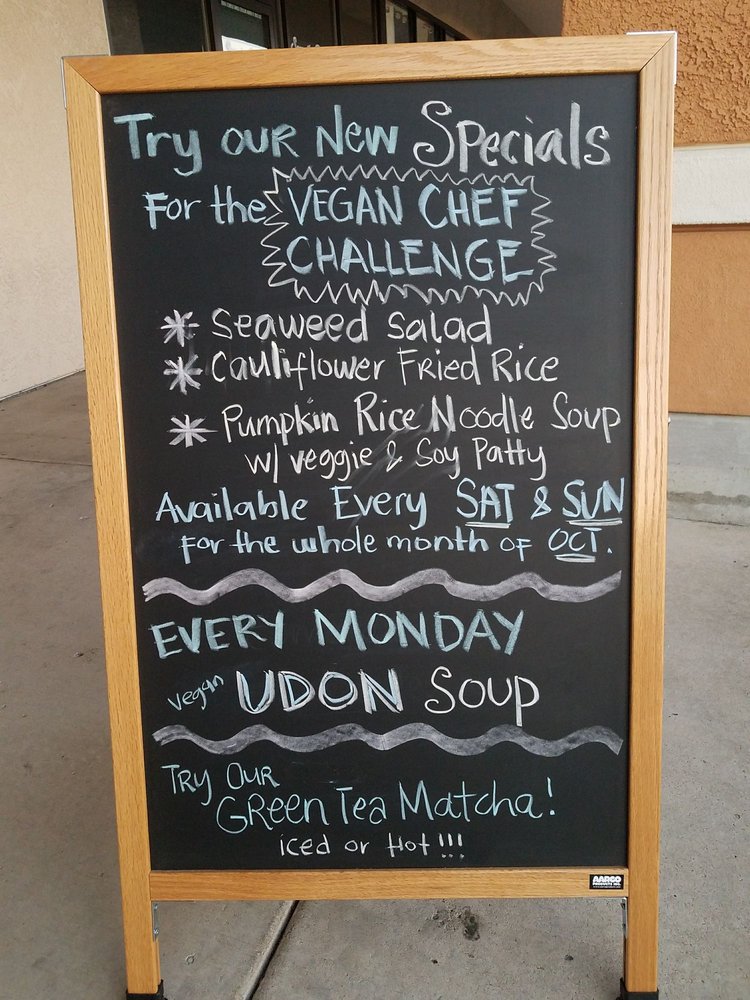 Try our New Specials
For the VEGAN CHEF
CHALLENGE
* Seaweed Salad
* Cauliflower Fried Rice
* Pumpkin Rice Noodle Soup
w/ veggie & Soy Patty
Available Every SAT & SUN
For the whole month of OCT.
EVERY MONDAY
vegan UDON Soup
TRY OUR
GReen Tea Matcha!
iced or Hot!!!
AARCO
PRODUCTS INC.